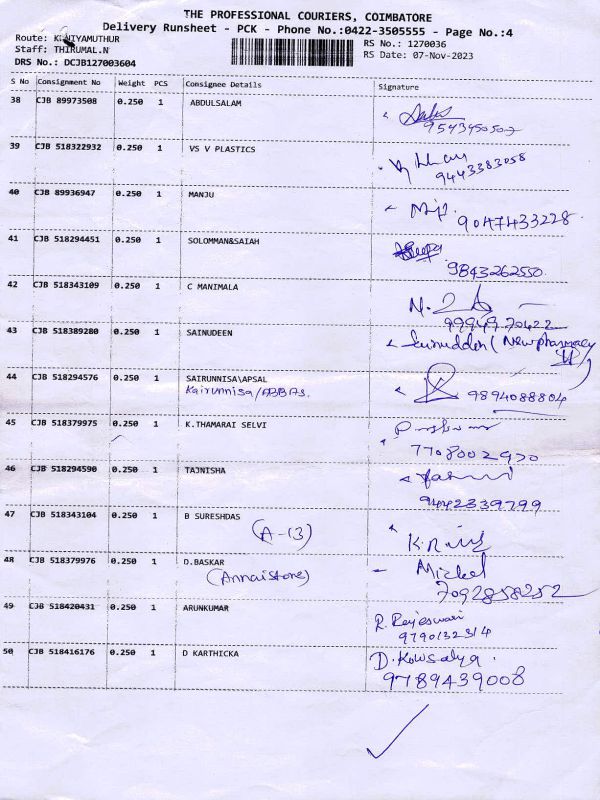 THE PROFESSIONAL COURIERS, COIMBATORE
Delivery Runsheet - PCK - Phone No.:0422-3505555 - Page No.:4
Route: KUNIYAMUTHUR
Staff: THIRUMAL.N
DRS No.: DCJB127003604
RS No.: 1270036
RS Date: 07-Nov-2023
S No Consignment No Weight PCS Consignee Details Signature
38 CJB 89973508 0.250 1 ABDULSALAM
39 CJB 518322932 0.250 1 VS V PLASTICS
9443383058
40 CJB 89936947 0.250 1 MANJU
9047433228
41 CJB 518294451 0.250 1 SOLOMMAN&SAIAH
9843262550
42 CJB 518343109 0.250 1 C MANIMALA
9994970422
43 CJB 518389280 0.250 1 SAINUDEEN
Sainudden (New pharmacy
44 CJB 518294576 0.250 1 SAIRUNNISA\APSAL
Kairunnisa/ABBAS.
9894088804
45 CJB 518379975 0.250 1 K.THAMARAI SELVI
7708002970
46 CJB 518294590 0.250 1 TAJNISHA
9442339799
47 CJB 518343104 0.250 1 B SURESHDAS
(A-13)
48 CJB 518379976 0.250 1 D.BASKAR
(Annai store) Mickel
7092858252
49 CJB 518420431 0.250 1 ARUNKUMAR
R. Rajeswari
9790132314
50 CJB 518416176 0.250 1 D KARTHICKA
D. Kowsalya.
9789439008